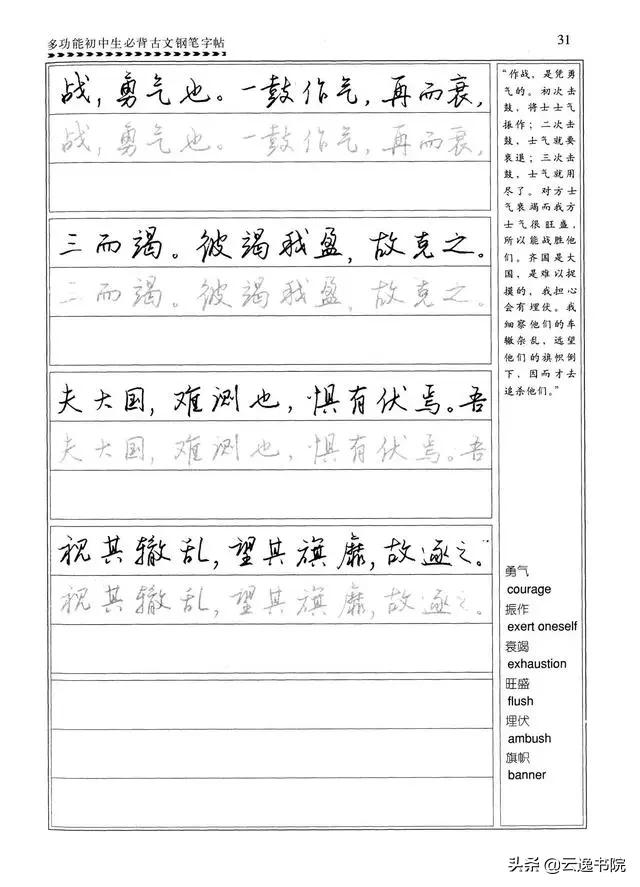 多功能初中生必背古文钢笔字帖
31
战，勇气也。一鼓作气，再而衰，
战，勇气也。一鼓作气，再而衰，
三而竭。彼竭我盈，故克之。
三而竭。彼竭我盈，故克之。
夫大国，难测也，惧有伏焉。吾
夫大国，难测也，惧有伏焉。吾
视其辙乱，望其旗靡，故逐之。
视其辙乱，望其旗靡，故逐之。
“作战，是凭勇
气的。初次击
鼓，将士士气
振作；二次击
鼓，士气就要
衰退；三次击
鼓，士气就用
尽了。对方士
气衰竭而我方
士气很旺盛，
所以能战胜他
们。齐国是大
国，是难以捉
摸的，我担心
会有埋伏。我
细察他们的车
辙杂乱，远望
他们的旗帜倒
下，因而才去
追杀他们。”
勇气
courage
振作
exert oneself
衰竭
exhaustion
旺盛
flush
埋伏
ambush
旗帜
banner
头条@云逸书院